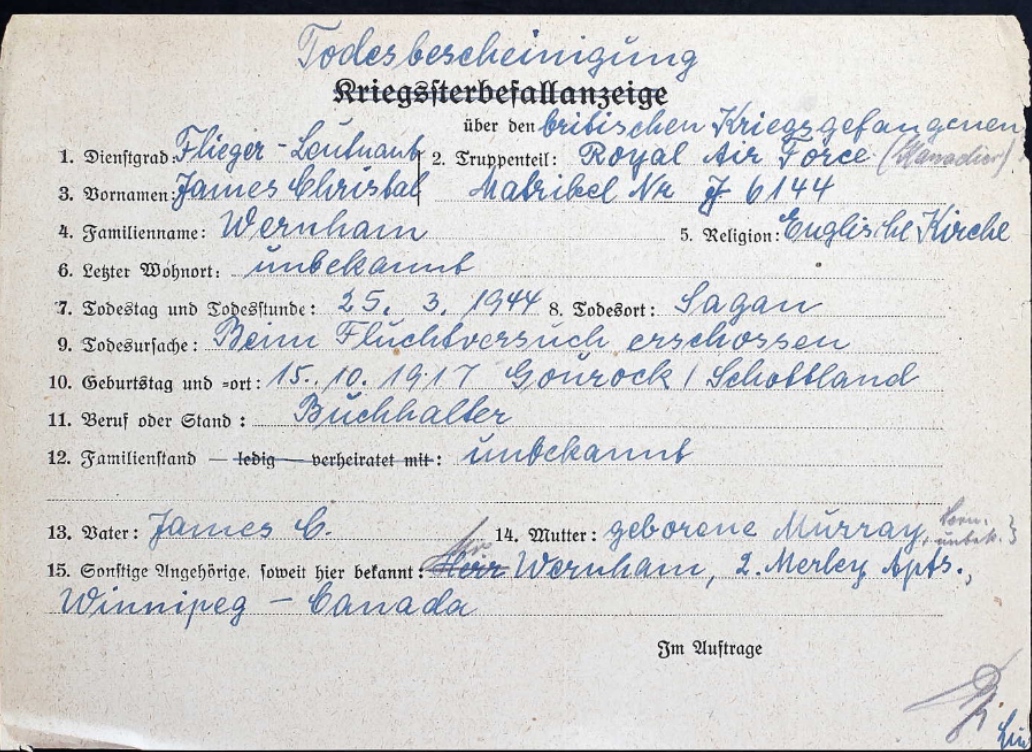 Todesbescheinigung
Kriegssterbefallanzeige
über den britischen Kriegsgefangenen
1. Dienstgrad: Flieger-Leutnant 2. Truppenteil: Royal Air Force (Kanadier)
3. Vornamen: James Christal Matrikel Nr J 6144
4. Familienname: Wernham 5. Religion: Englische Kirche
6. Letzter Wohnort: unbekannt
7. Todestag und Todesstunde: 25. 3. 1944 8. Todesort: Sagan
9. Todesursache: Beim Fluchtversuch erschossen
10. Geburtstag und =ort: 15. 10. 1917 Gourock / Schottland
11. Beruf oder Stand: Buchhalter
12. Familienstand — ledig — verheiratet mit: unbekannt
13. Vater: James C. 14. Mutter: geborene Murray, unbek.
15. Sonstige Angehörige, soweit hier bekannt: Herr Wernham, 2. Merley Apts.,
Winnipeg – Canada
Im Auftrage